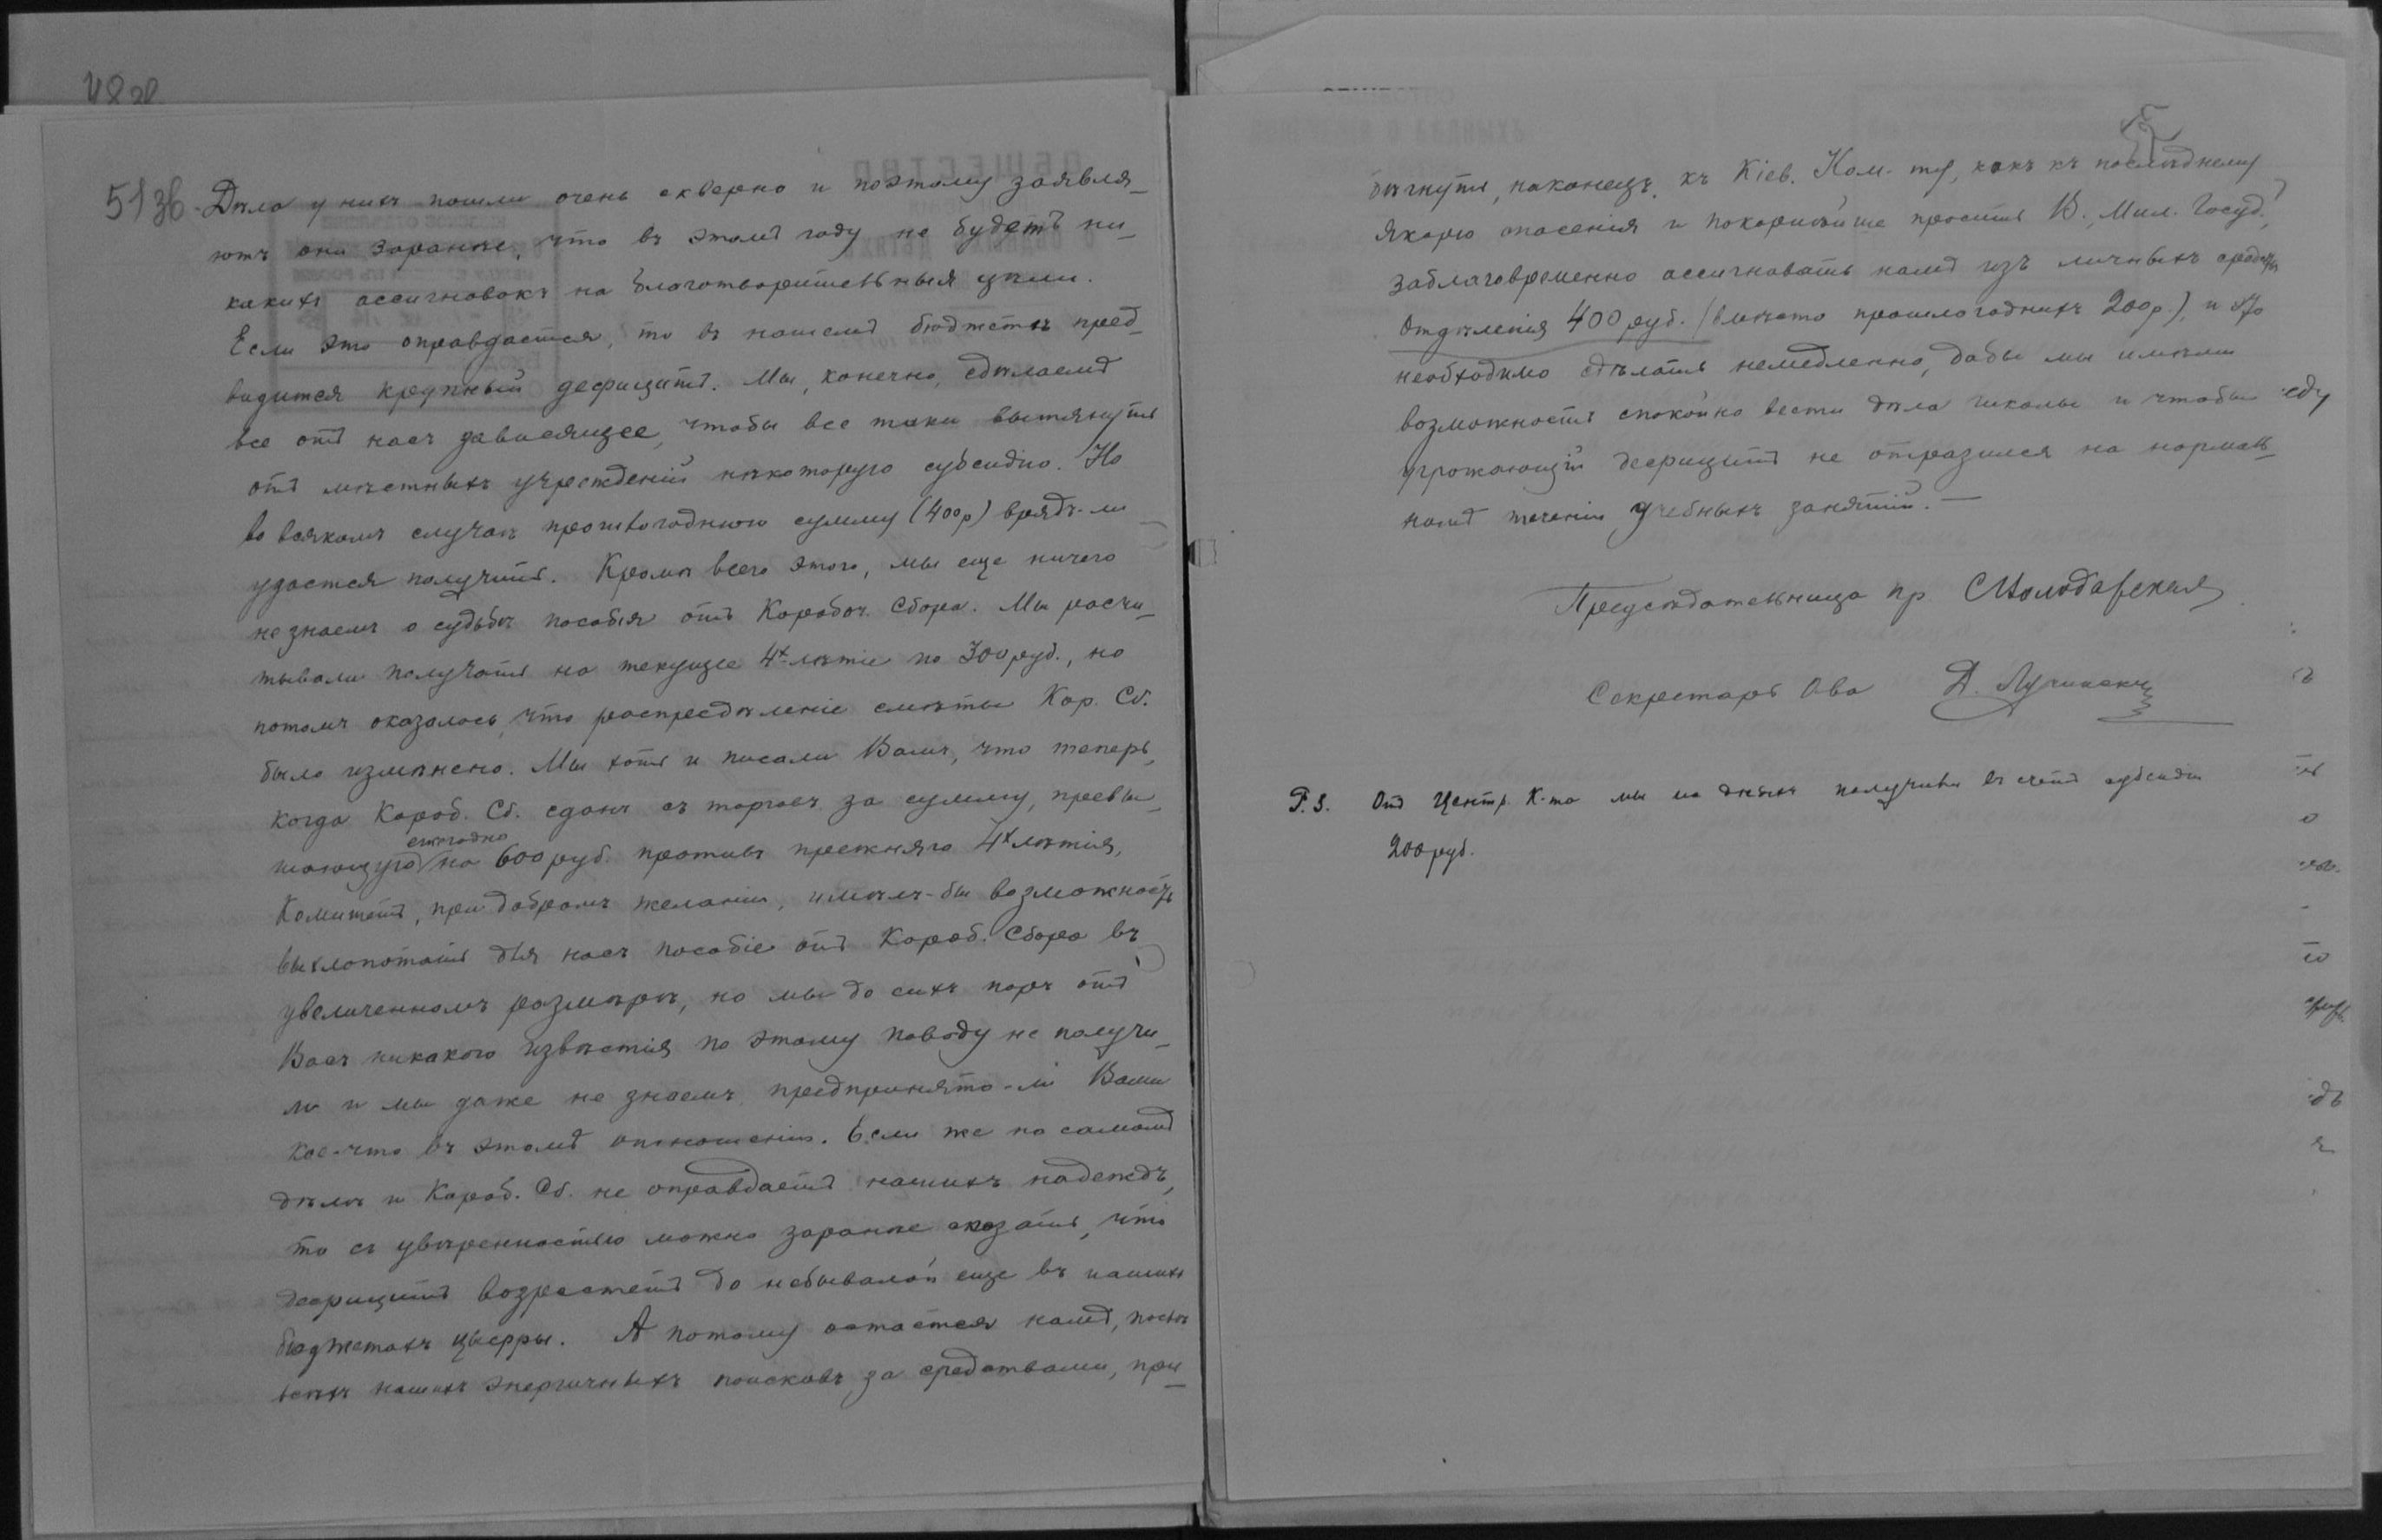 51 зв.
Дѣла у нихъ пошли очень скверно и поэтому заявля-
ютъ они заранѣе, что въ этомъ году не будетъ ни-
какихъ ассигновокъ на благотворительныя цѣли.
Если это оправдается, то въ нашемъ бюджетѣ пред-
видится крупный дефицитъ. Мы, конечно, сдѣлаемъ
все отъ насъ зависящее, чтобы все таки вытянуть
отъ мѣстныхъ учрежденій нѣкоторую субсидію. Но
во всякомъ случаѣ прошлогоднюю сумму (400р) врядъ-ли
удастся получить. Кромѣ всего этого, мы еще ничего
не знаемъ о судьбѣ пособія отъ Коробоч. Сбора. Мы расчи-
тывали получать на текущее 4х-лѣтіе по 300 руб., но
потомъ оказалось, что распредѣленіе смѣты Кор. Сб.
было измѣнено. Мы хотя и писали Вамъ, что теперь,
когда Короб. Сб. сданъ съ торговъ за сумму, превы-
шающую ежегодно на 600 руб. противъ прежняго 4х лѣтія,
Комитетъ, при добромъ желаніи, имѣлъ-бы возможность
выхлопотать для насъ пособіе отъ Короб. Сбора въ
увеличенномъ размѣрѣ, но мы до сихъ поръ отъ
Васъ никакого извѣстія по этому поводу не получи-
ли и мы даже не знаемъ, предпринято-ли Вами
кое-что въ этомъ отношеніи. Если же на самомъ
дѣлѣ и Короб. Сб. не оправдаетъ нашихъ надеждъ,
то съ увѣренностью можно заранѣе сказать, что
дефицитъ возрастетъ до небывалой еще въ нашихъ
бюджетахъ цыфры. А потому остается намъ, послѣ
всѣхъ нашихъ энергичныхъ поисковъ за средствами, при-
бѣгнуть, наконецъ, къ Кіев. Ком-ту, какъ къ послѣднему
якорю спасенія и покорнѣйше просить В., Мил. Госуд.,
заблаговременно ассигновать намъ изъ личныхъ средствъ
Отдѣленія 400 руб. (вмѣсто прошлогоднихъ 200р), и это
необходимо сдѣлать немедленно, дабы мы имѣли
возможность спокойно вести дѣла школы и чтобы
угрожающій дефицитъ не отразился на нормаль-
номъ теченіи учебныхъ занятій. —
Предсѣдательница пр. С Молодавская
Секретарь Ова Д. Лучинскій
P. S. Отъ Центр. К-та мы на дняхъ получили въ счетъ субсидіи
200 руб.